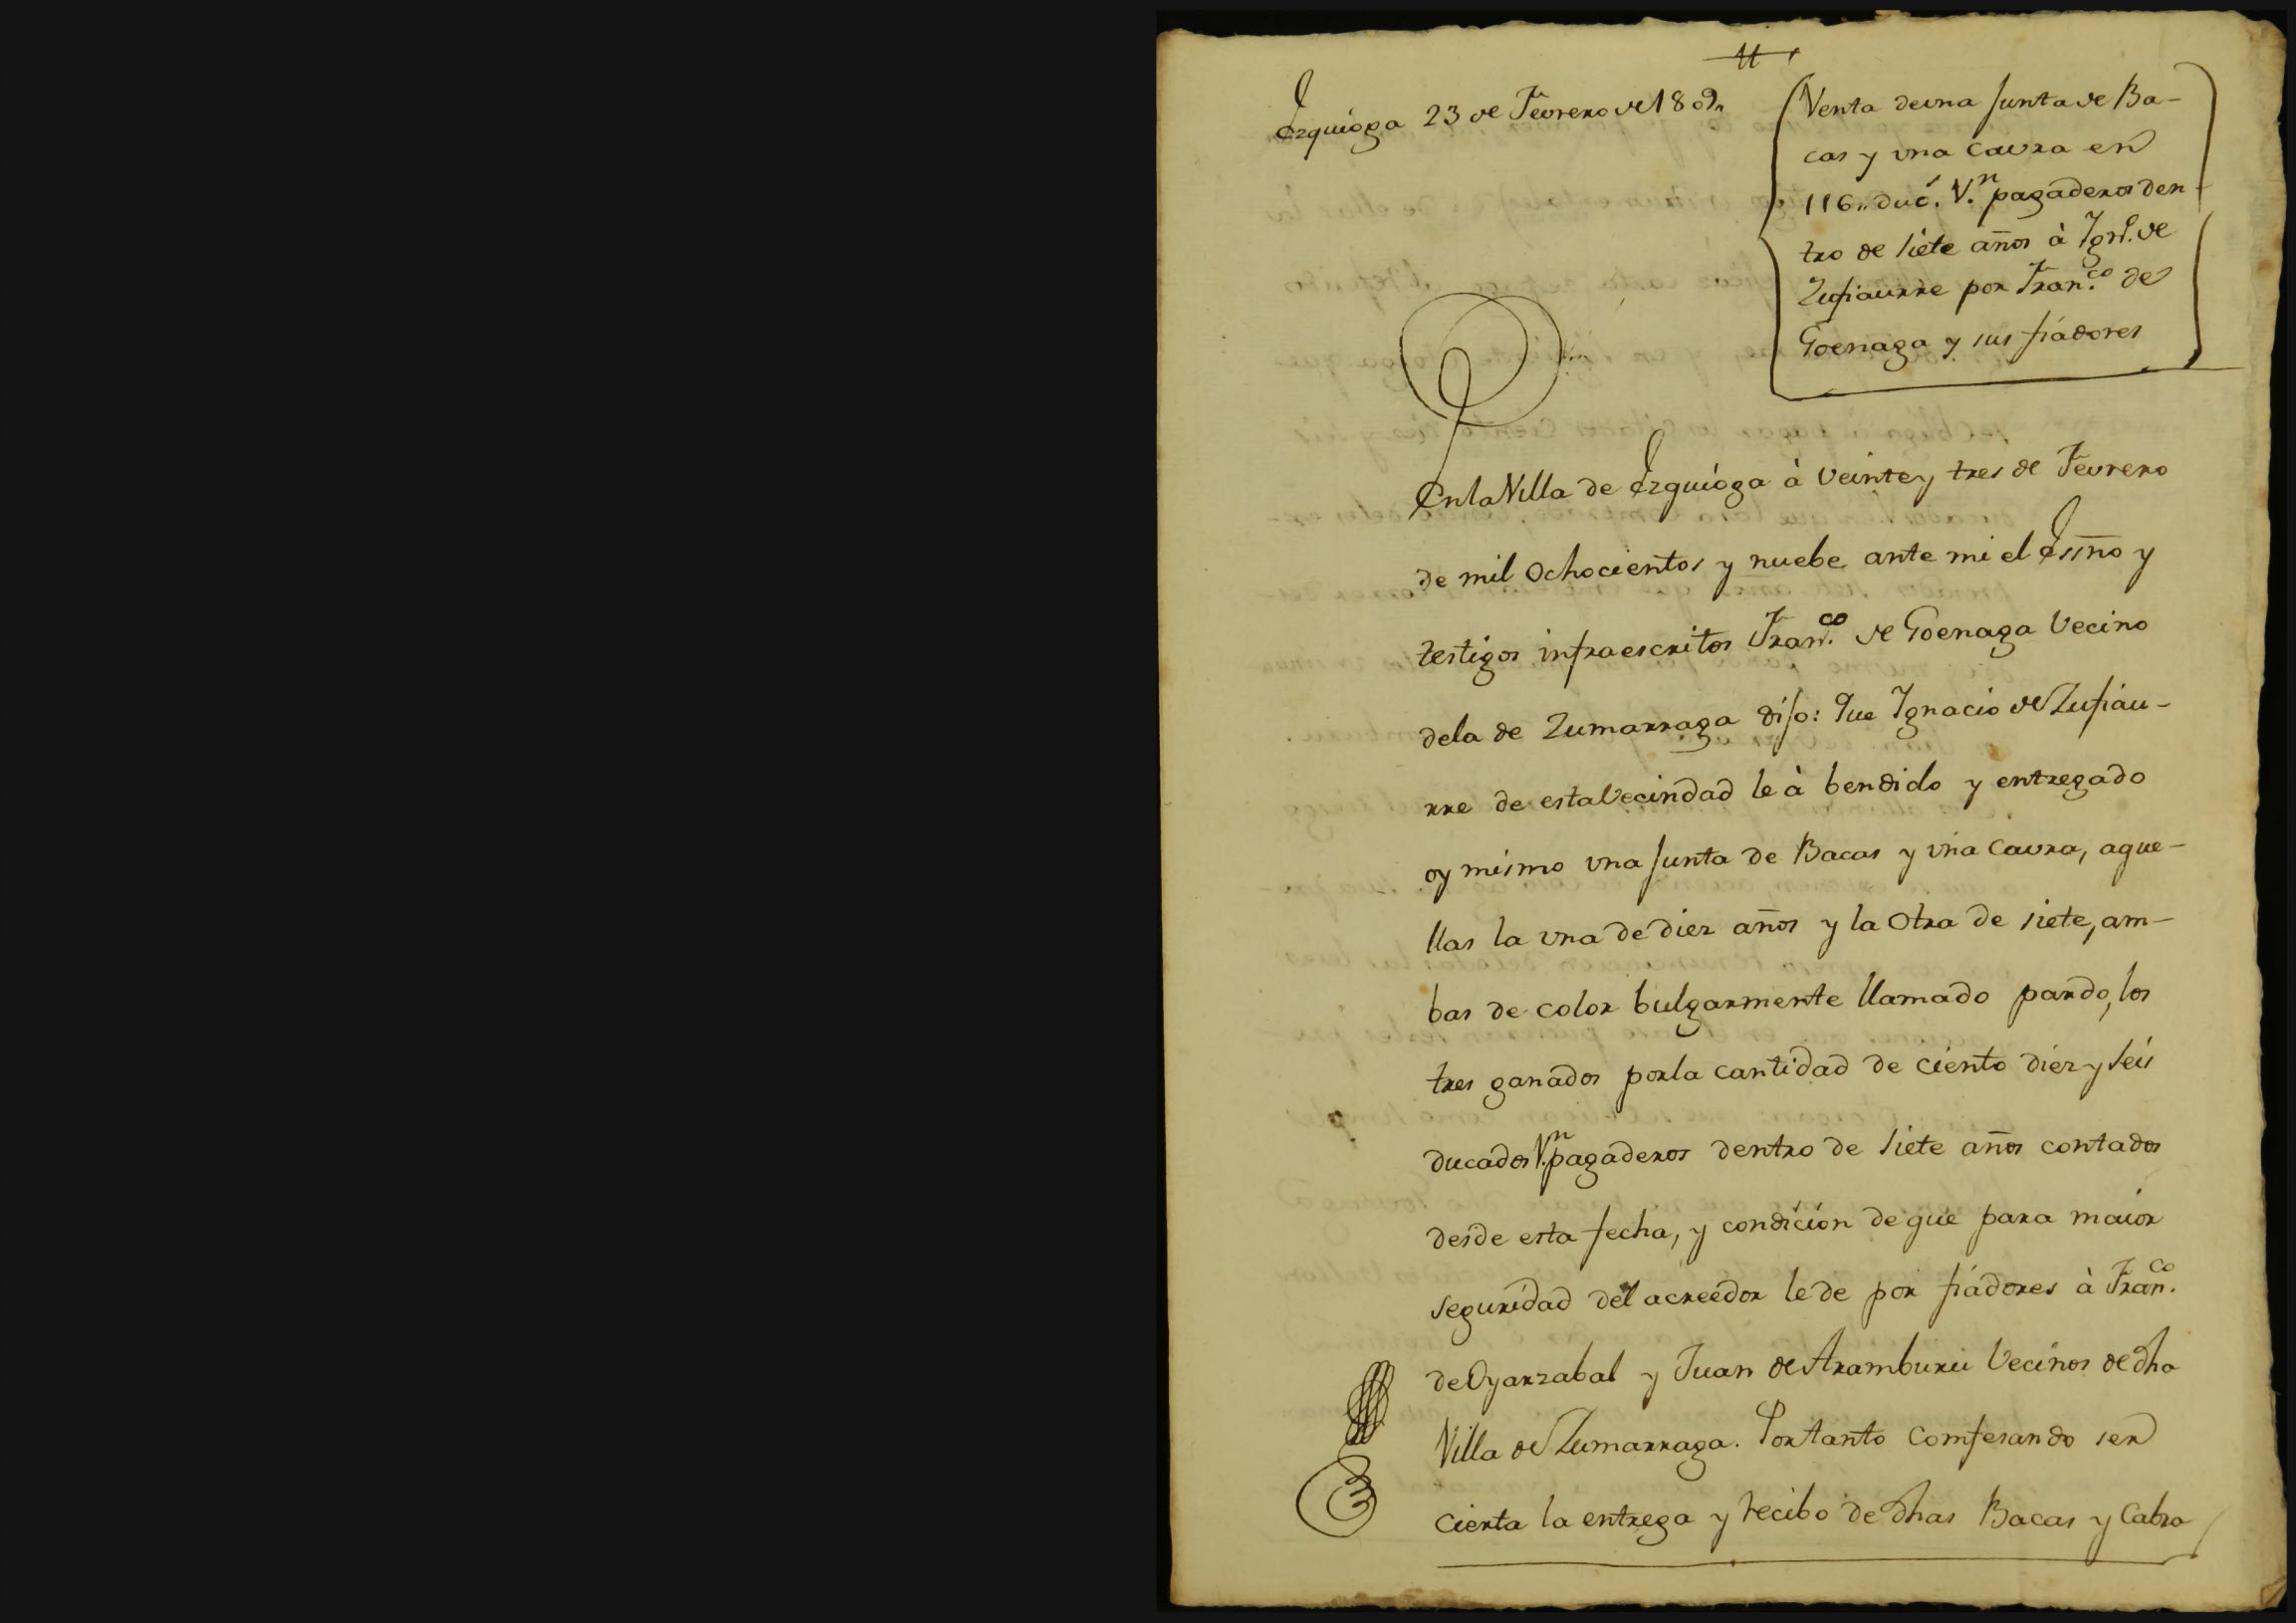 Ezquioga 23 de Fevrero de 1809,,
Venta de una Junta de Ba-
cas y una cavra en
116,, duc.ˢ V.ⁿ pagaderos den-
tro de siete años à Ign.º de
Zufiaurre por Fran.ᶜᵒ de
Goenaga y sus fiadores
En la Villa de Ezquioga à veinte y tres de Fevrero
de mil ochocientos y nuebe ante mi el Essno y
testigos infraescritos Fran.ᶜᵒ de Goenaga Vecino
dela de Zumarraga dijo: Que Ignacio de Zufiau-
rre de esta Vecindad le à bendido y entregado
oy mismo una Junta de Bacas y una Cavra, aque-
llas la una de diez años y la Otra de siete, am-
bas de color bulgarmente llamado pardo, los
tres ganados por la cantidad de ciento diez y seis
ducados V.ⁿ pagaderos dentro de siete años contados
desde esta fecha, y condicion de que para maior
seguridad del acreedor le de por fiadores à Fran.ᶜᵒ
de Oyarzabal y Juan de Aramburu Vecinos de dha
Villa de Zumarraga. Por tanto comfesando ser
cierta la entrega y recibo de dhas Bacas y Cabra